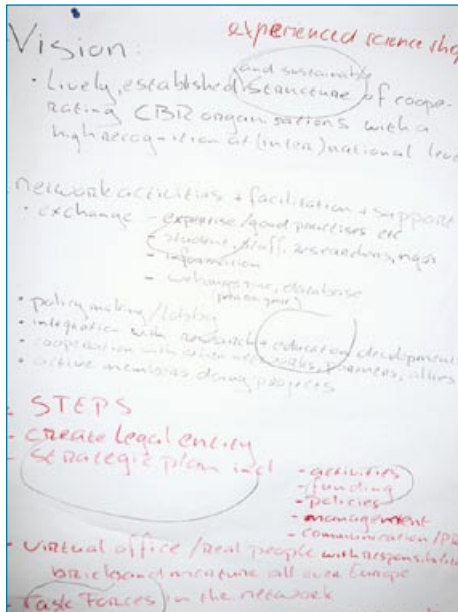 experienced science shop
Vision:
and sustainable
• Lively, established structure of coope-
rating CBR organisations with a
high recognition at (inter)national level
network activities + facilitation + support
• exchange - expertise/good practises etc
- student, staff, researchers, ngos
- information
- webmagazine, database
• policymaking/lobby
• integration with research + education development
• cooperation with other networks, partners, allies
• active members doing projects
STEPS
- create legal entity
- strategic plan incl
- activities
- funding
- policies
- management
- communication/PR
- virtual office/real people with responsibilities
all over Europe
- Task Forces in the network